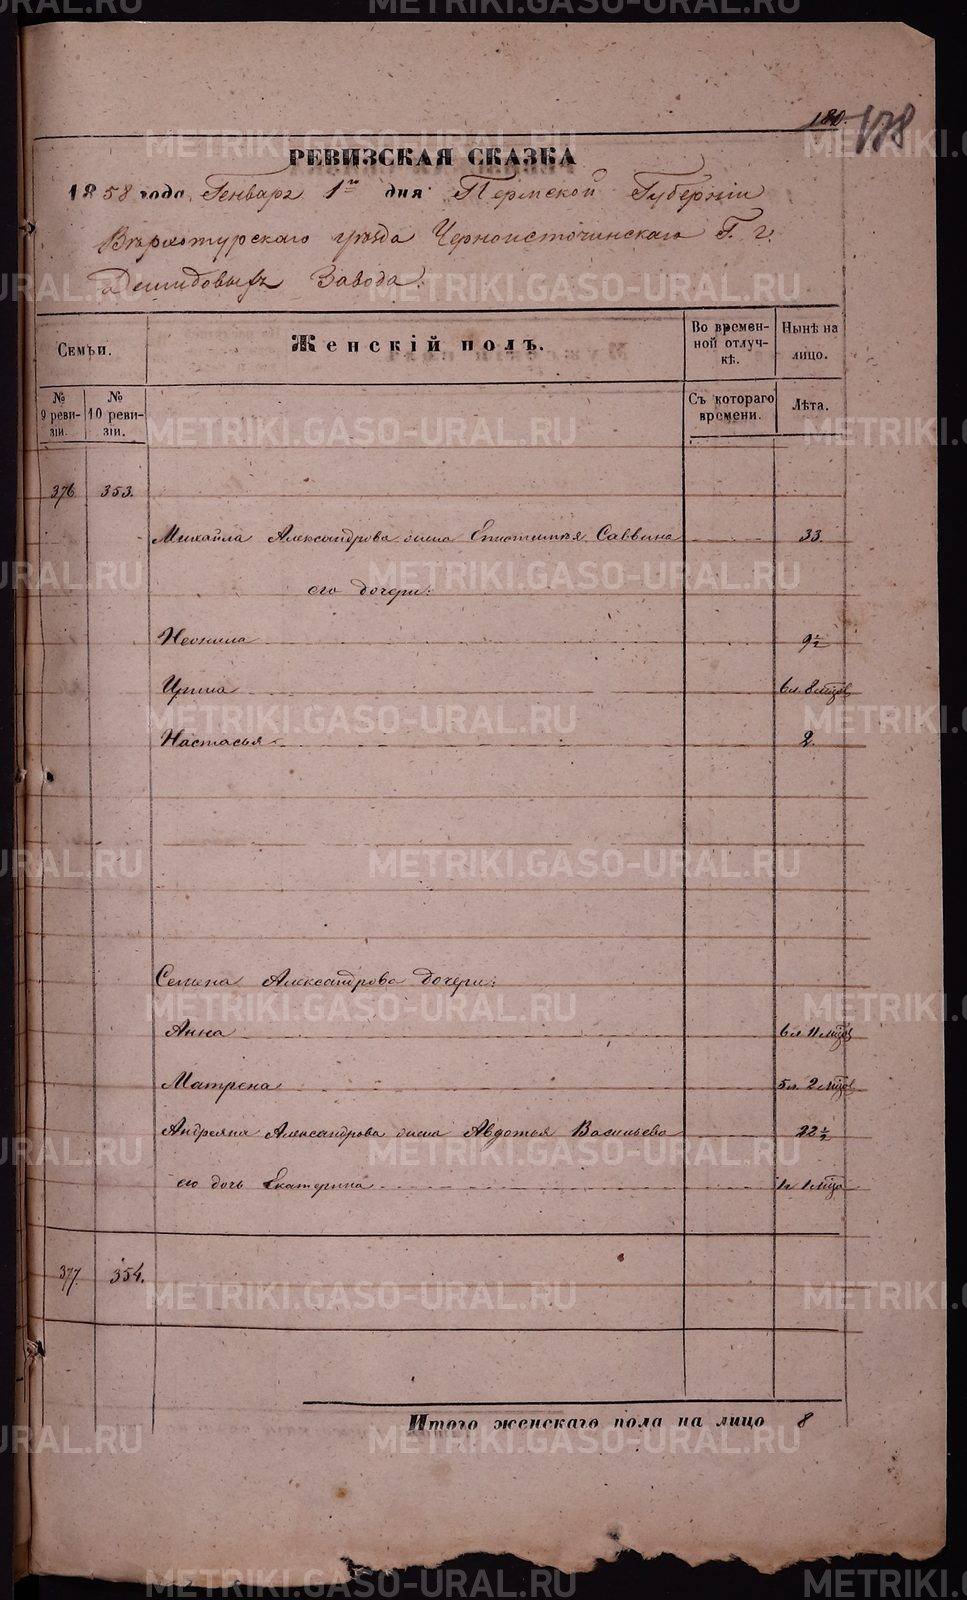 180. 178
РЕВИЗСКАЯ СКАЗКА
1858 года, Генваря 1го дня Пермской Губерніи
Верхотурскаго уѣзда Черноисточинскаго Г. г.
Демидовыхъ Завода.
Семьи.
Женскій полъ.
Во времен-
ной отлуч-
кѣ.
Нынѣ на
лицо.
№
9 реви-
зіи.
№
10 реви-
зіи.
Съ котораго
времени.
Лѣта.
376 353.
Михайла Александрова жена Епистимья Саввина 33.
его дочери:
Неонила 9½
Ирина 6 л. 8 мцов
Настасья 2.
Семена Александрова дочери:
Анна 6 л 11 мцов
Матрена 5 л. 2 мцов
Андреяна Александрова жена Авдотья Васильева 22½
его дочь Екатерина 1 г 1 мца
377. 354.
Итого женскаго пола на лицо 8
METRIKI.GASO-URAL.RU